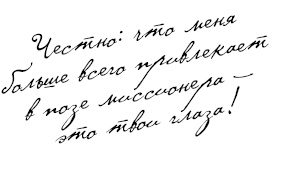 Честно: что меня
больше всего привлекает
в позе миссионера –
это твои глаза!